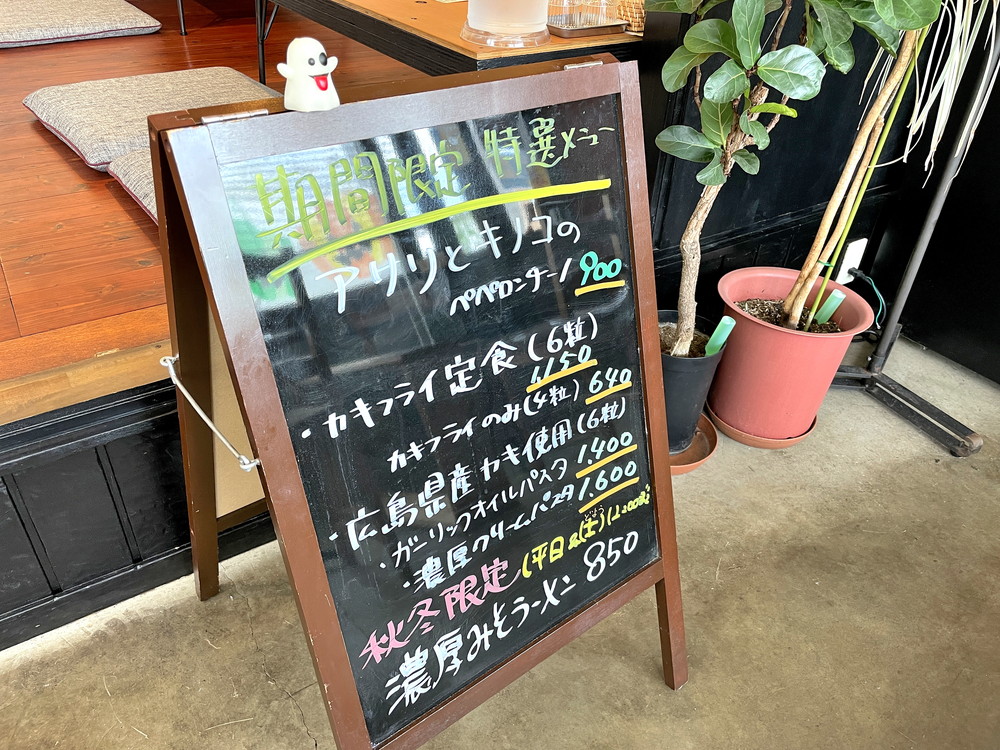 期間限定 特選メニュー
アサリとキノコの
ペペロンチーノ 900
・カキフライ定食(6粒)
1,150
カキフライのみ(4粒) 640
・広島県産カキ使用(6粒)
・ガーリックオイルパスタ 1.400
・濃厚クリームパスタ 1.600
どよう
秋冬限定(平日&(土)12:00迄)
濃厚みそラーメン 850